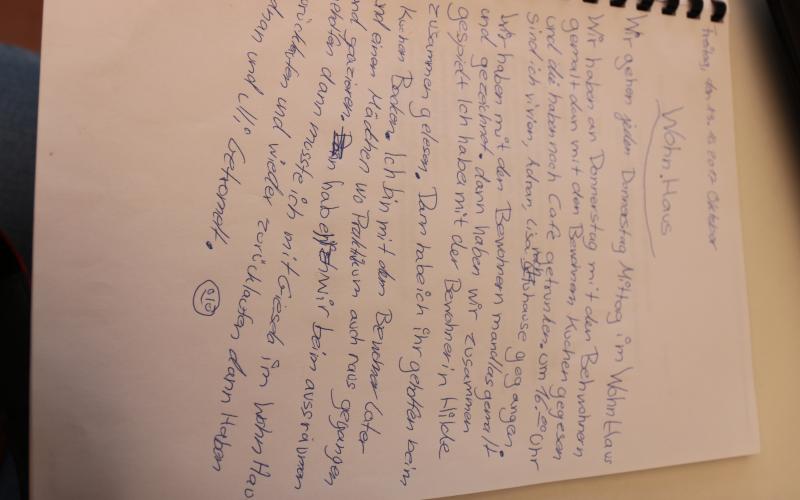 Freitag, den 19. 10 2012 Oktober
Wohn.Haus
Wir gehen jeden Donnerstag Mittog im WohnHaus
Wir haben an Donnerstag mit den Behwohnern
gemalt dan mit den Bewohnern Kuchen gegesen
und die haben noch Cafe getrunken. um 16.00 Uhr
sind ich vivien, Adrian, Lisa nach zuhause gegangen.
Wir haben mit den Bewohnern mandlas gemalt
und gezeichnet. dann haben wir zusammen
gespielt Ich habe mit der Bewohnerin Hilde
zusammen gelesen. Dann habe ich ihr geholfen beim
Kuchen Backen. Ich bin mit dem Bewohner
und einen Mädchen wo Praktikum auch raus gegangen
und spazieren haben wir beim aussräumen
geholfen dann musste ich mit im Wohn Hau
zurücklaufen und wieder zurücklaufen dann Haben